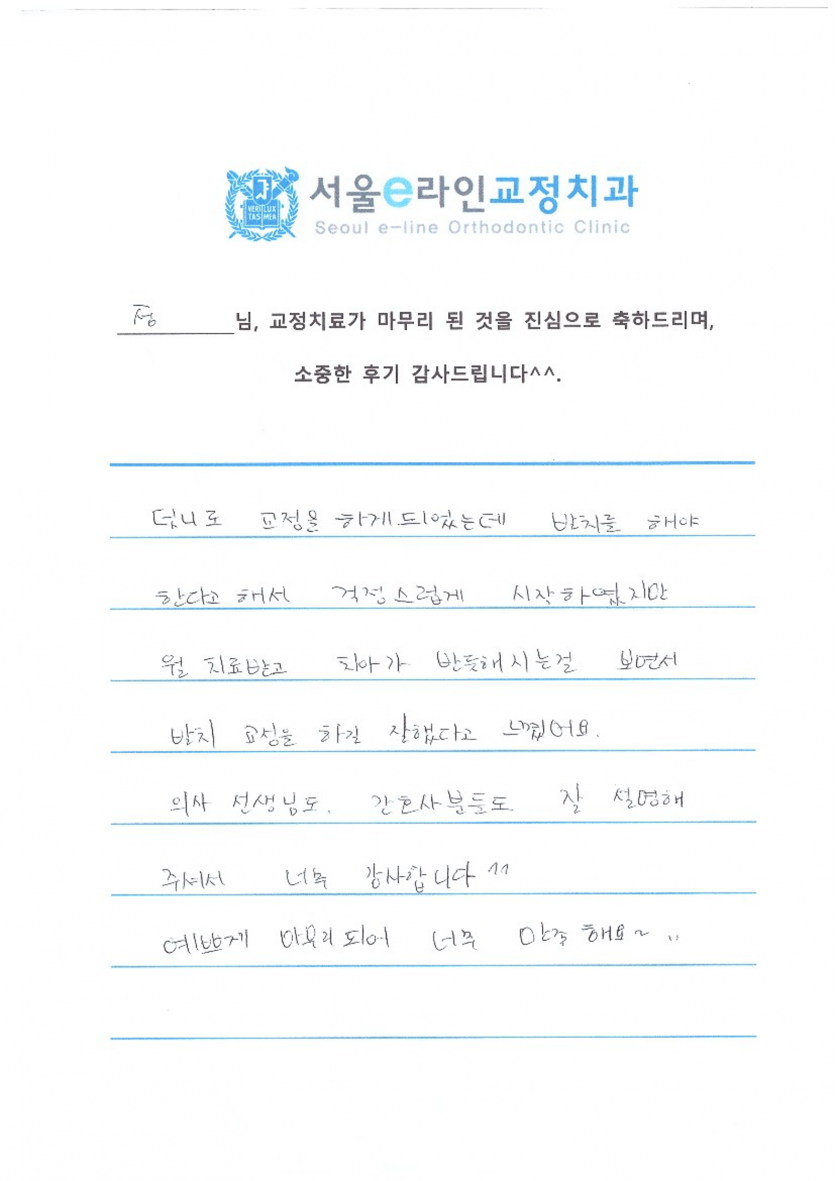 VERI LUX
TAS MEA
서울e라인교정치과
Seoul e-line Orthodontic Clinic
정 님, 교정치료가 마무리 된 것을 진심으로 축하드리며,
소중한 후기 감사드립니다^^.
덧니로 교정을 하게되었는데 발치를 해야
한다고 해서 걱정스럽게 시작하였지만
월 치료받고 치아가 반듯해지는걸 보면서
발치 교정을 하길 잘했다고 느꼈어요.
의사 선생님도, 간호사분들도 잘 설명해
주셔서 너무 감사합니다 ^^
예쁘게 마무리되어 너무 만족 해요~